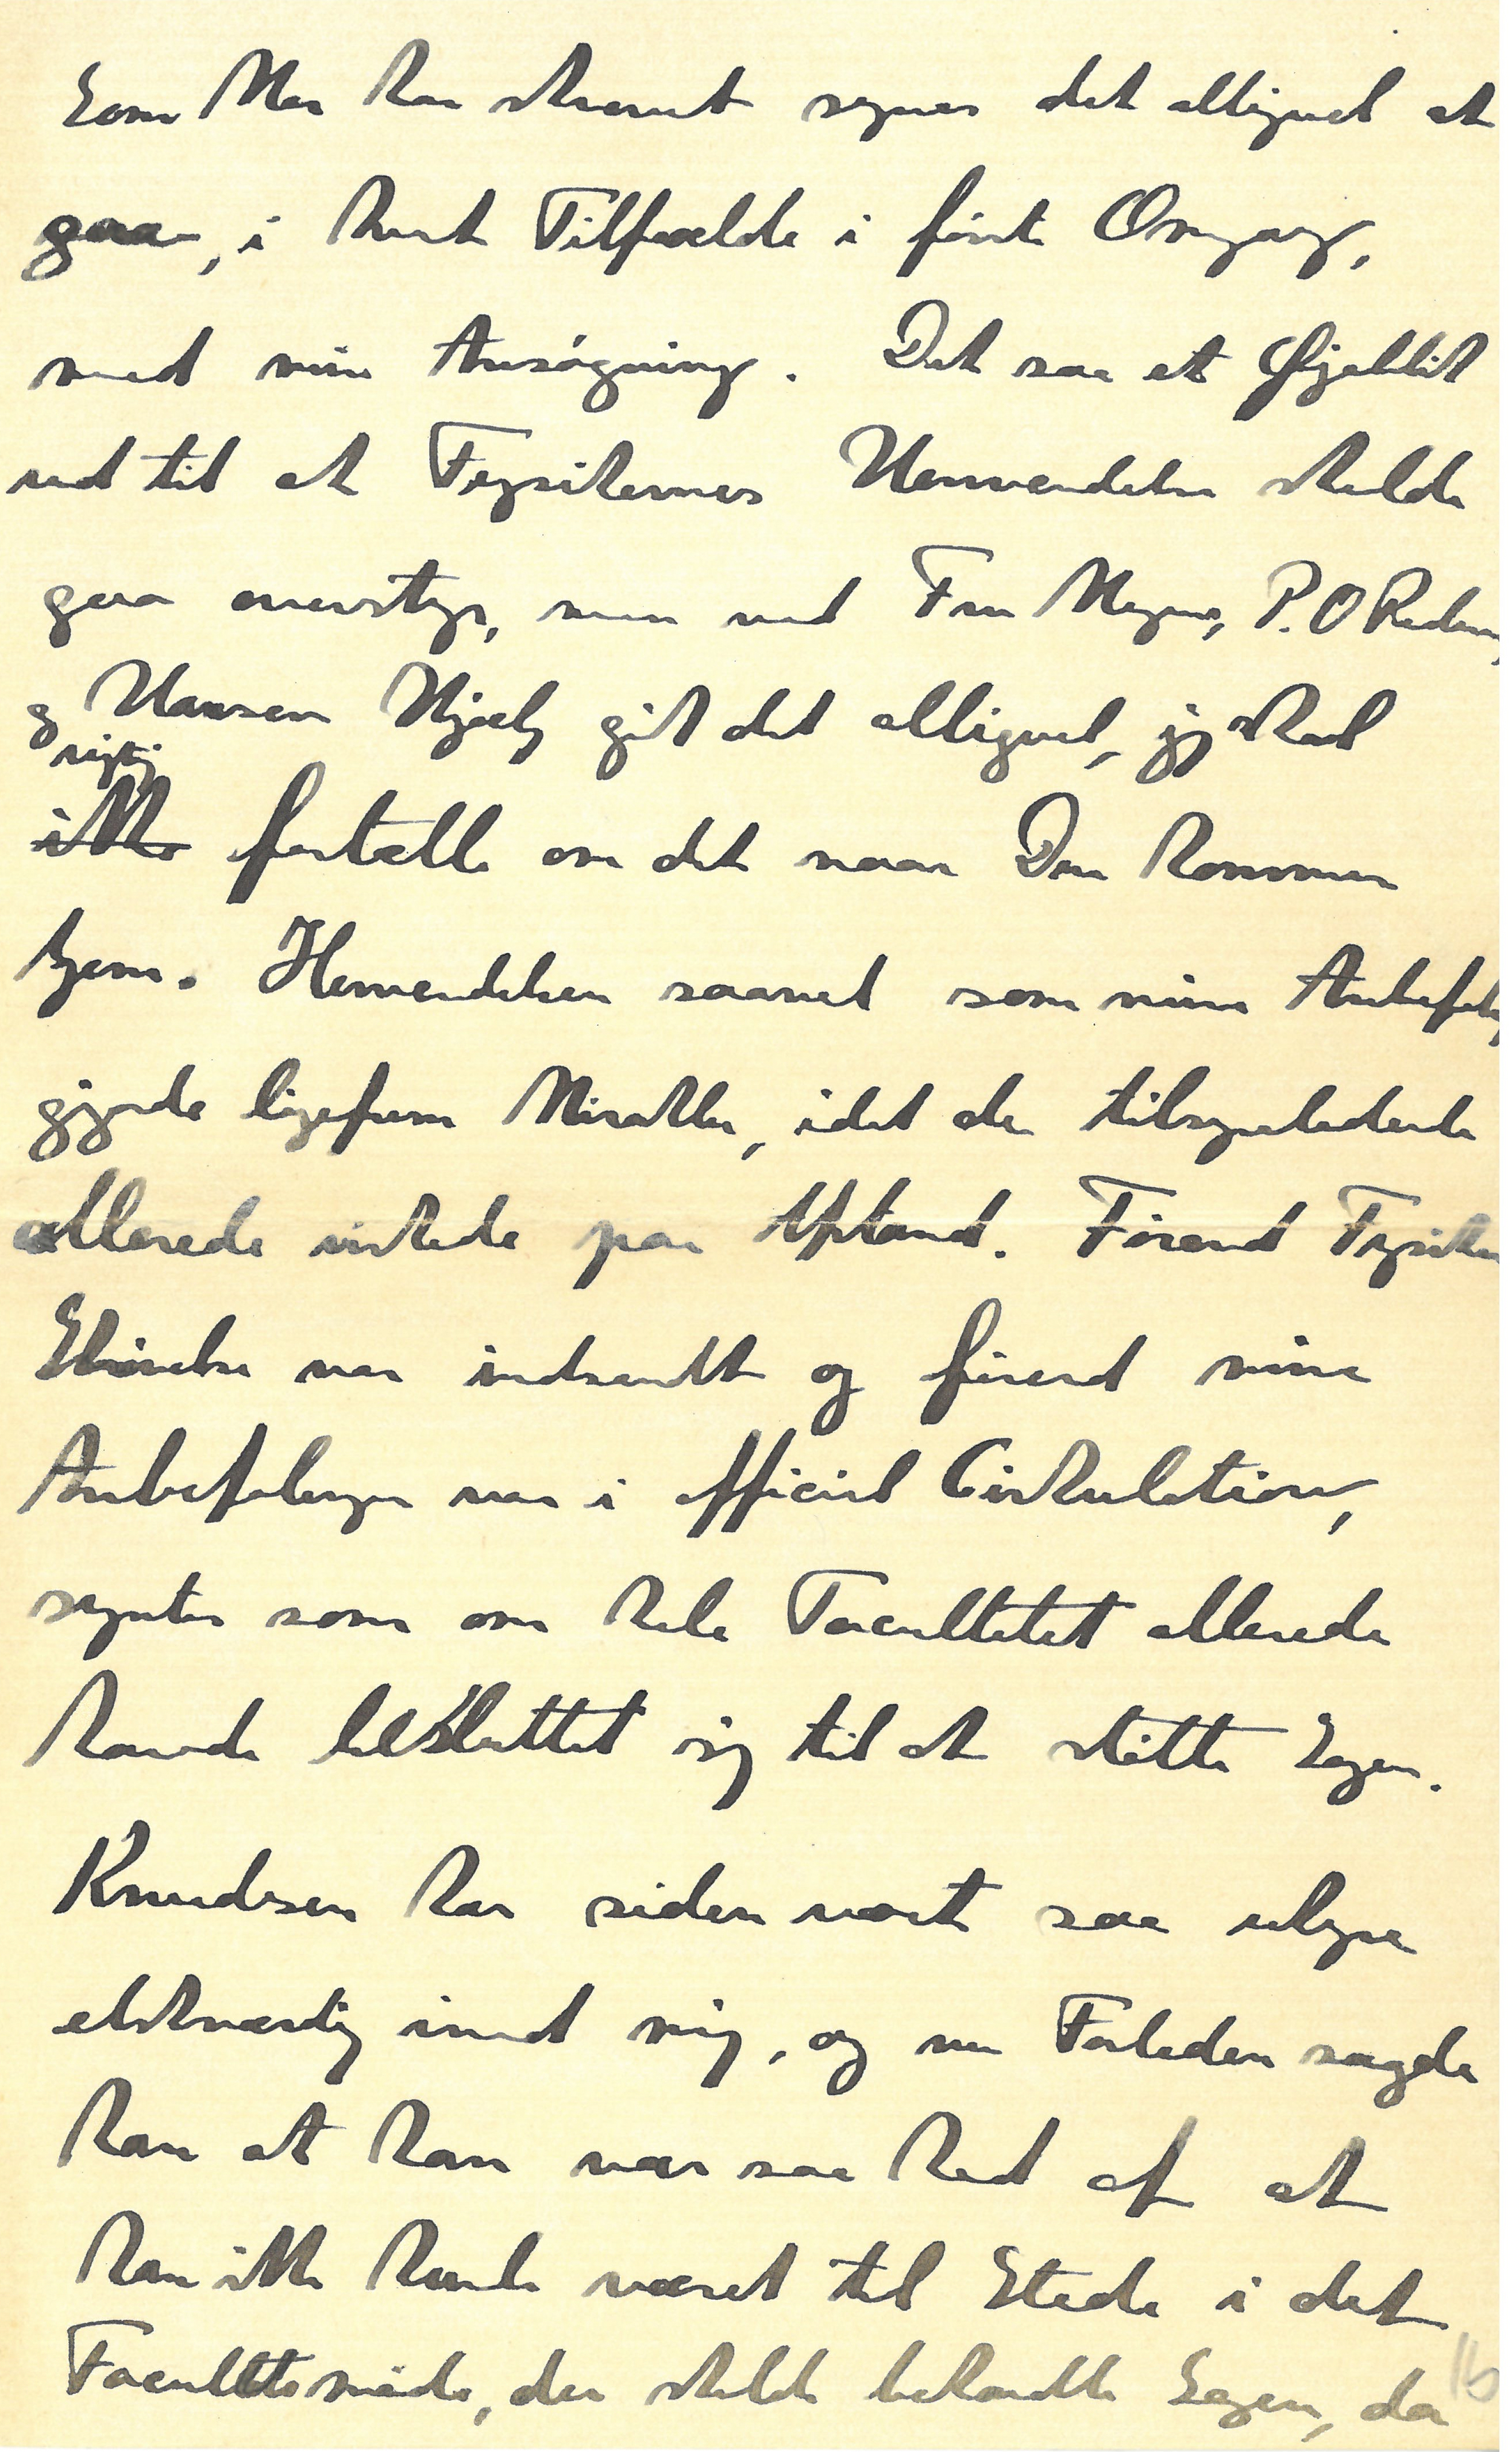 Som Mor har skrevet synes det alligevel at
gaa, i hvert Tilfælde i første Omgang,
med min Ansøgning. Det saa et Øjeblik
ud til at Fysikernes Henvendelse skulde
gaa overstyr, men ved Fru Meyers, P.O Pedersen
og Hansen Hjælp gik det alligevel, jeg skal
rigtig
ikke fortælle om det naar Du kommer
hjem. Henvendelsen saavel som mine Anbefal
gjorde ligefrem Mirakler, idet de tilsyneladende
allerede virkede paa Afstand. Førend Fysiker
Skrivelse var indsendt og førend mine
Anbefalinger var i officiel Cirkulation,
syntes som om hele Facultetet allerede
havde besluttet sig til at støtte Sagen.
Knudsen har siden været saa uhyre
elskværdig imod mig, og nu Forleden sagde
han at han var saa ked af at
han ikke havde været til Stede i det
Facultetsmøde, der skulde behandle Sagen, da
16